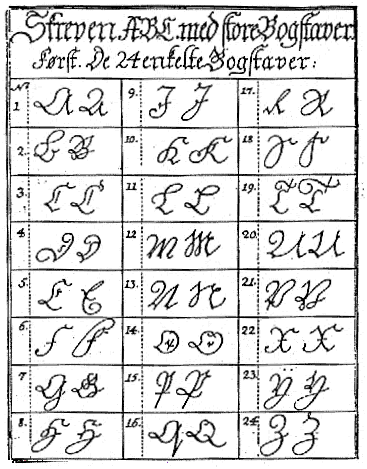 Skreven ABC med store Bogstaver.
Først. De 24 enkelte Bogstaver:
N.
1 A A
9. J J
17. R R
2. B B
10. K K
18 S S
3. C C
11 L L
19. T T
4 D D
12 M M
20. U U
5. E E
13. N N
21. V V
6. F F
14. O O
22. X X
7 G G
15. P P
23. Y Y
8. H H
16. Q Q
24. Z Z